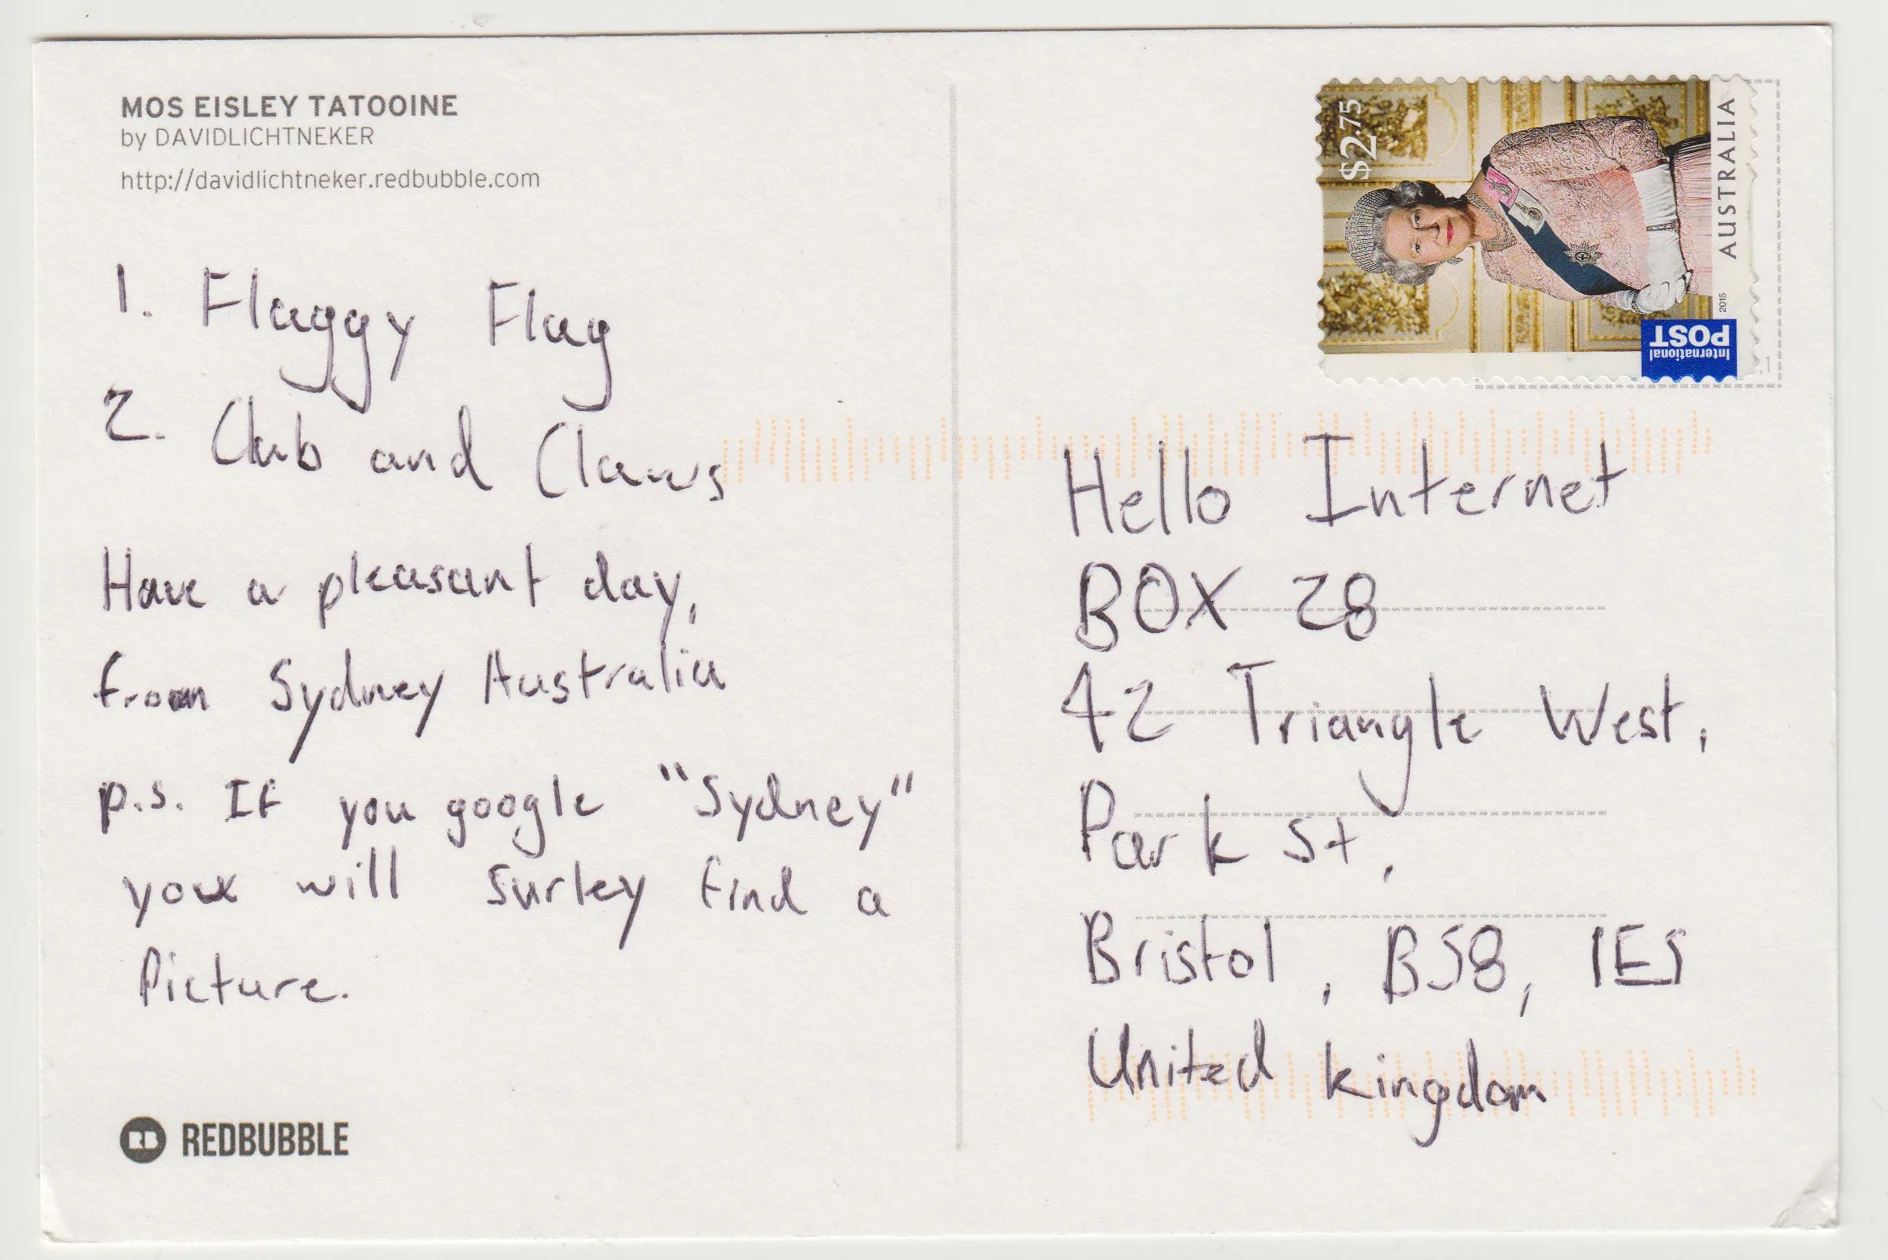 MOS EISLEY TATOOINE
by DAVIDLICHTNEKER
http://davidlichtneker.redbubble.com
1. Flaggy Flag
2. Club and Claws
Have a pleasant day,
from Sydney Australia
p.s. If you google "Sydney"
you will surley find a
Picture.
REDBUBBLE
$2.75
AUSTRALIA
2015
International
POST
Hello Internet
BOX 28
42 Triangle West,
Park St,
Bristol, BS8, 1ES
United kingdom